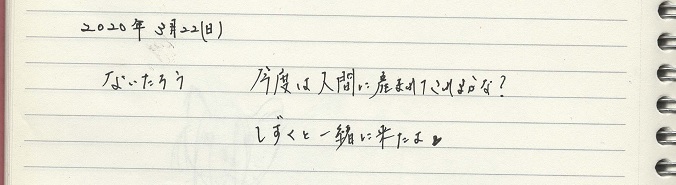 2020年 3月22(日)
ないたろう 今度は人間に産まれてこれるかな?
しずくと一緒に来たよ